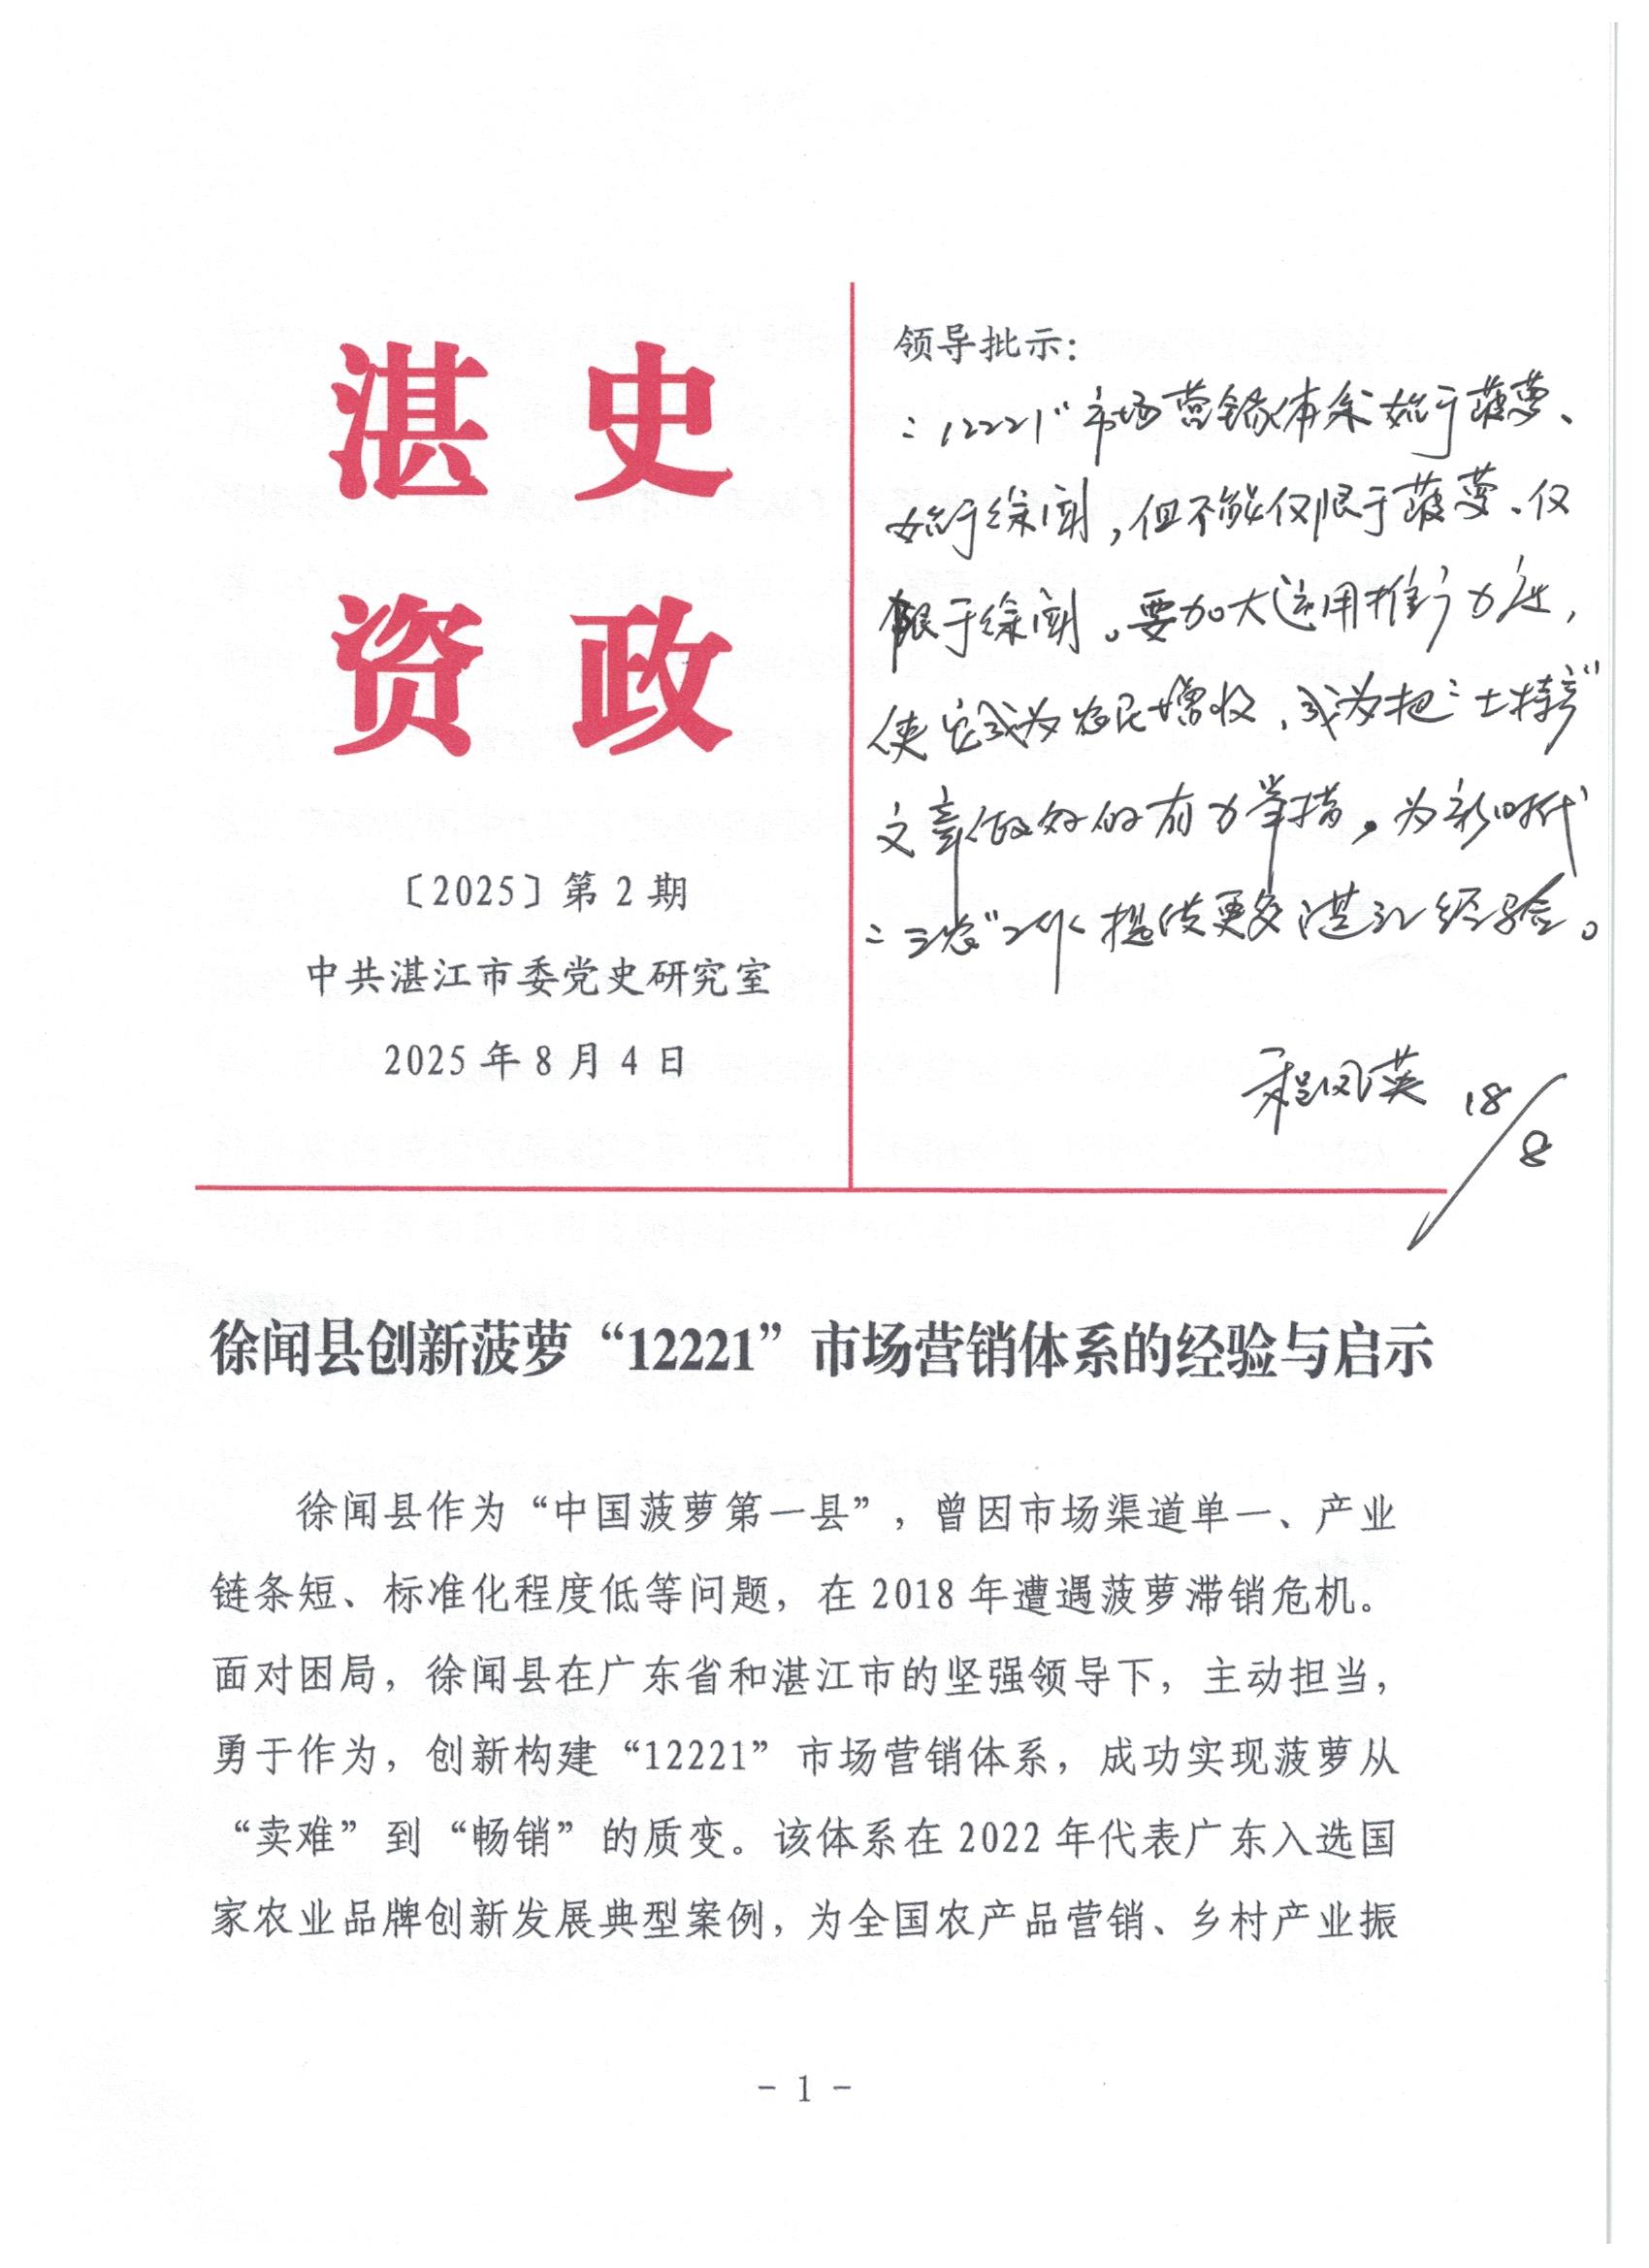 湛史
资政
〔2025〕第 2 期
中共湛江市委党史研究室
2025 年 8 月 4 日
领导批示：
“12221”市场营销体系始于菠萝、
始于徐闻，但不能仅限于菠萝、仅
限于徐闻。要加大运用推广力度，
使它成为农民增收、成为把“土特产”
文章做好的有力举措，为新时代
“三农”工作提供更多湛江经验。
程凤英 18/8
徐闻县创新菠萝“12221”市场营销体系的经验与启示
徐闻县作为“中国菠萝第一县”，曾因市场渠道单一、产业
链条短、标准化程度低等问题，在 2018 年遭遇菠萝滞销危机。
面对困局，徐闻县在广东省和湛江市的坚强领导下，主动担当，
勇于作为，创新构建“12221”市场营销体系，成功实现菠萝从
“卖难”到“畅销”的质变。该体系在 2022 年代表广东入选国
家农业品牌创新发展典型案例，为全国农产品营销、乡村产业振
- 1 -